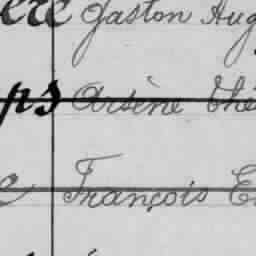 ère Gaston Aug
ps Arsène Thé
e François E